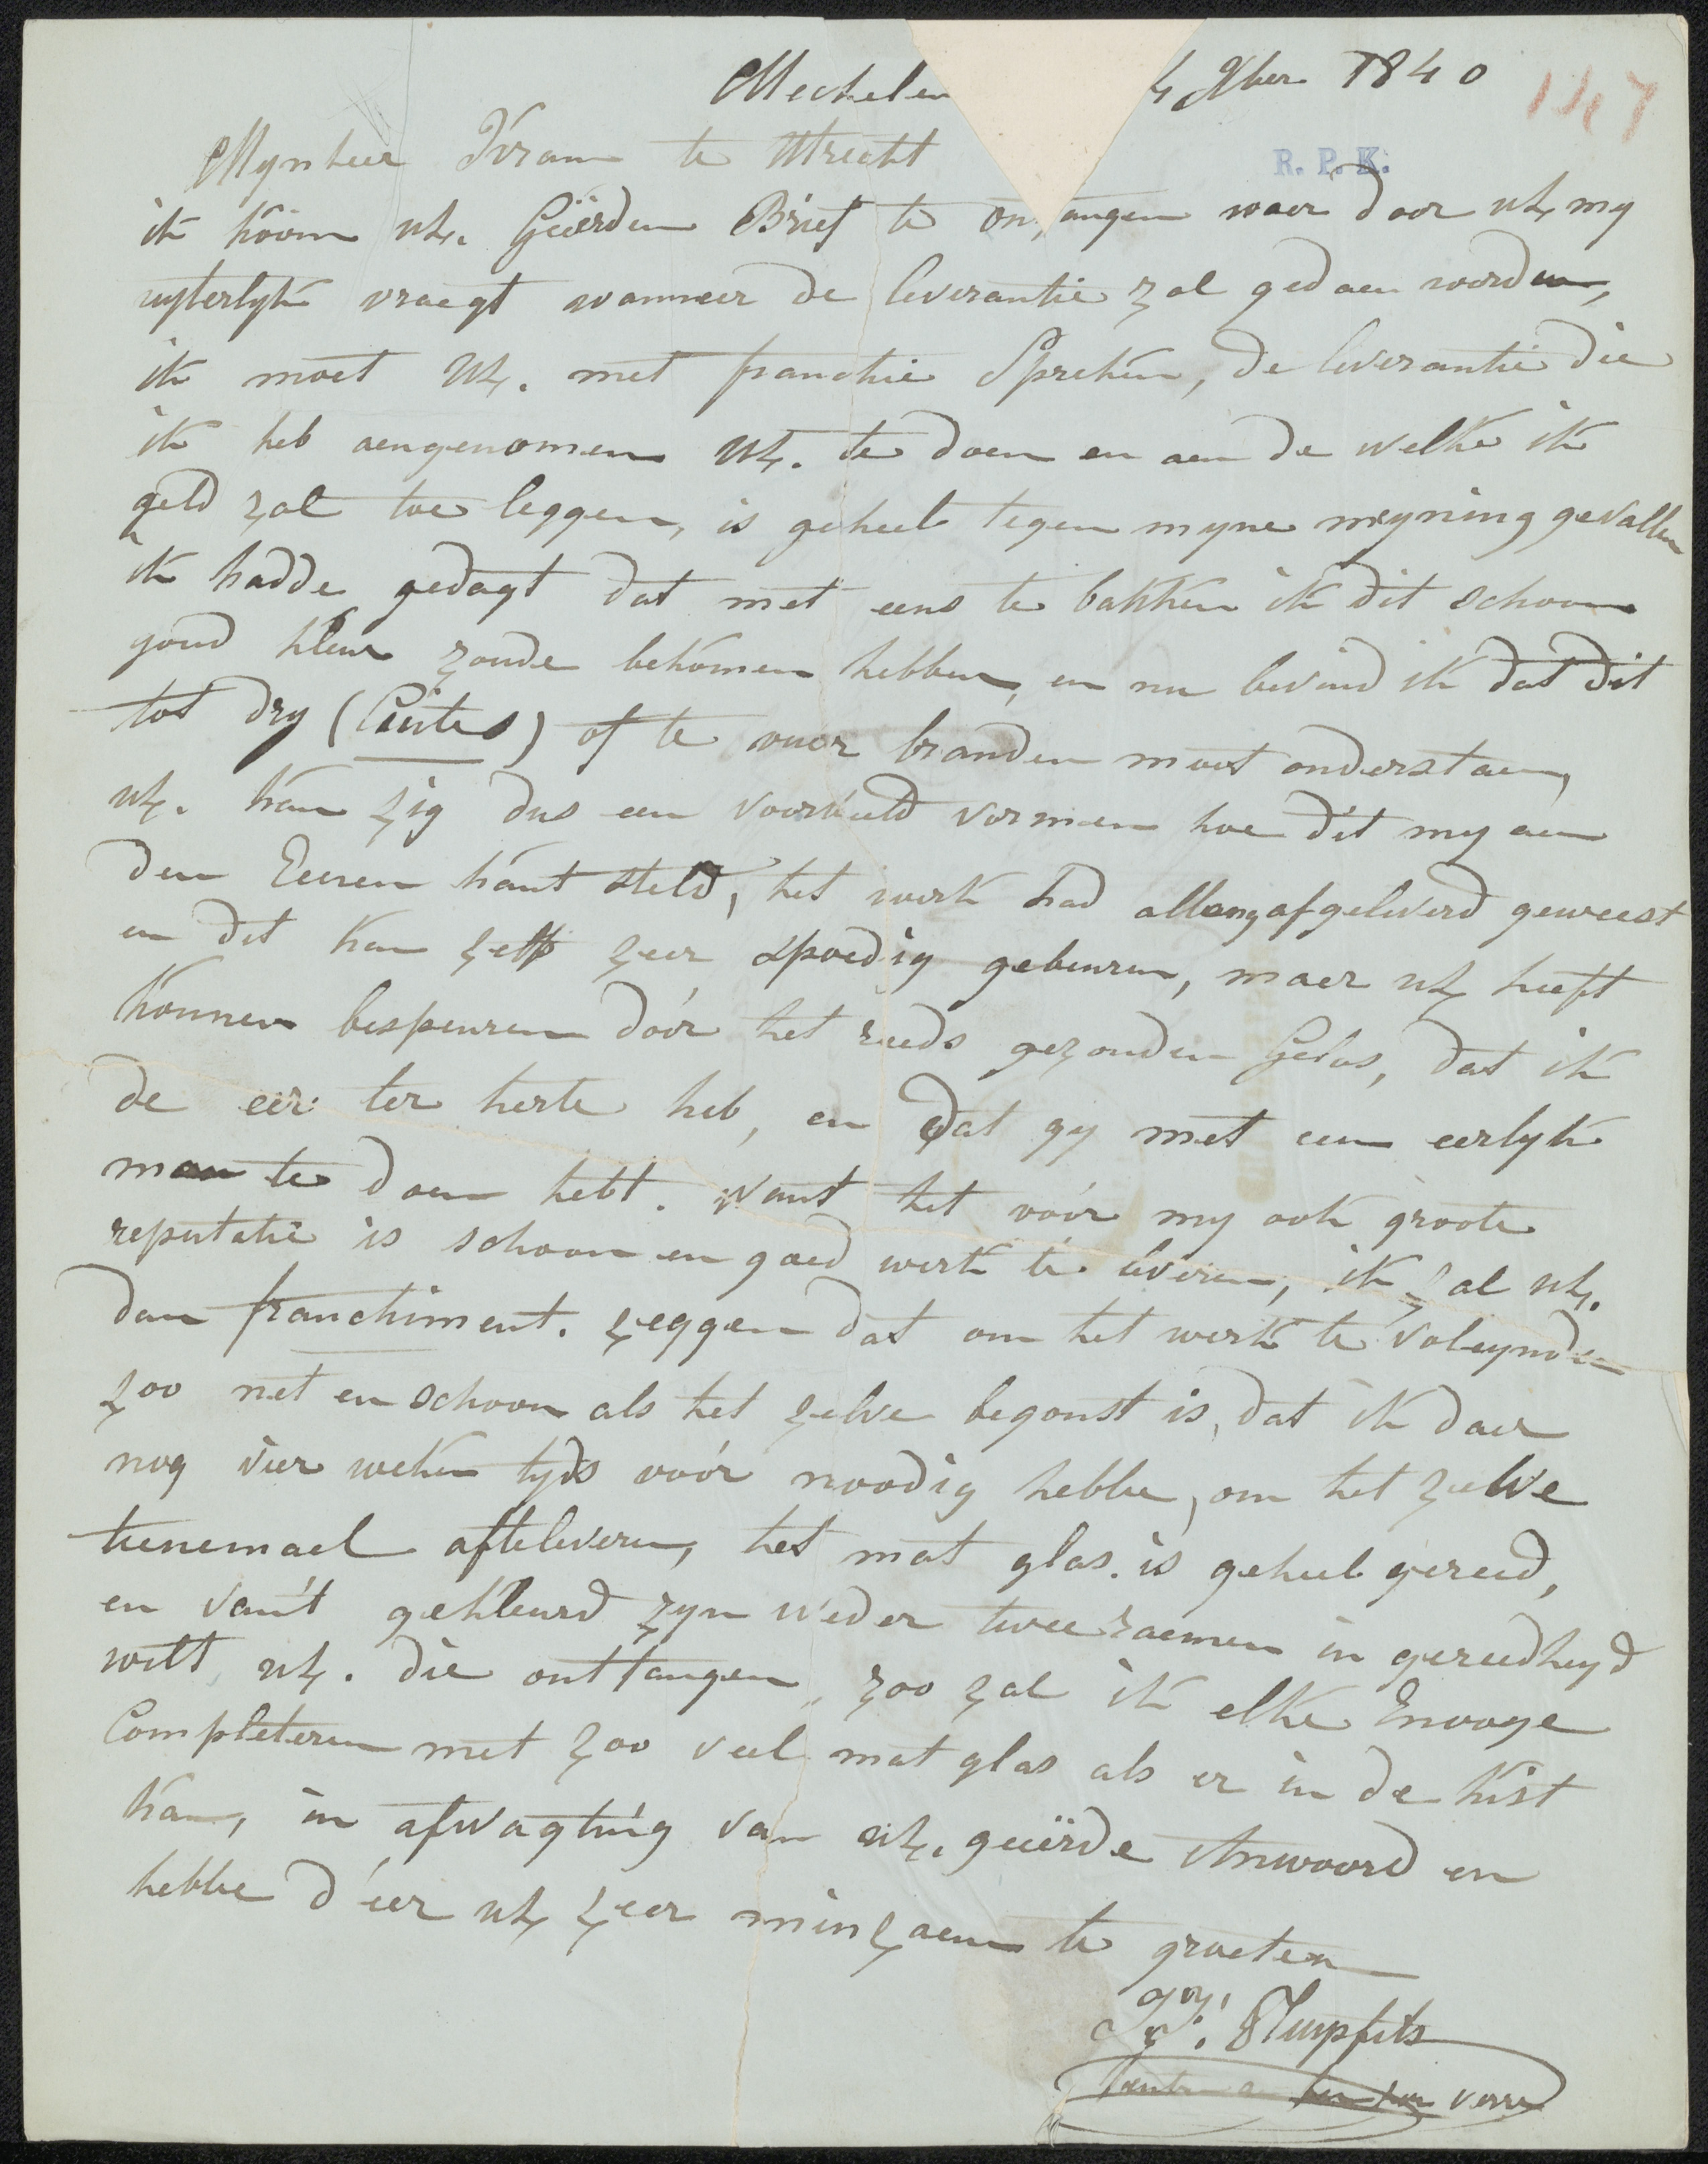 Mechelen 4 9ber 1840
147
Mynheer Kram te Utrecht
R. P. K.
ik koom uE. Geëerden Brief te on,angen waer door uE my
uyterlyk vraegt wanneer de leverantie zal gedaen worden,
ik moet UE. met franchie Spreken, de leverantie die
ik heb aengenomen UE. te doen en aen de welke ik
geld zal toe leggen, is geheel tegen myne meyning gevallen
ik hadde gedagt dat met eens te bakken ik dit schoon
goud kleur zoude bekomen hebben, en nu bevind ik dat dit
tot dry (Cuites) of te vuer branden moet onderstaen,
uE. kan zig dus een voorbeeld vormen hoe dit my aen
den Eenen kant steld, het werk had allang afgeleverd geweest
en dit kan zelfs zeer spoedig gebeuren, maer uE heeft
konnen bespeuren dóór het reeds gezonden Gelas, dat ik
de eer ter herte heb, en dat gy met een eerlyk
man te doen hebt. want het vóór my ook groote
reputatie is schoon en goed werk te leveren, ik zal uE.
dan franchiment. zeggen dat om het werk te voleynden
zoo net en schoon als het zelve begonst is, dat ik daer
nog vier weken tyds vóór noodig hebbe, om het zelve
teenemael afteleveren, het mat glas. is geheel gereed,
en van't gekleurd zyn weder twee raemen in gereedheyd
wilt uE. die ontfangen, zoo zal ik elke Envoye
Completeren met zoo veel mat glas als er in de kist
kan, in afwagting van uE. geëerde Antwoord en
hebbe d'eer uE zeer minzaem te groeten
Pluys
verre